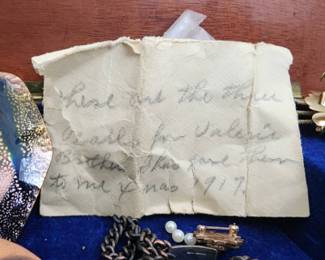 These are the three
Pearls for Valerie
Brother Thad gave them
to me Xmas 1917.